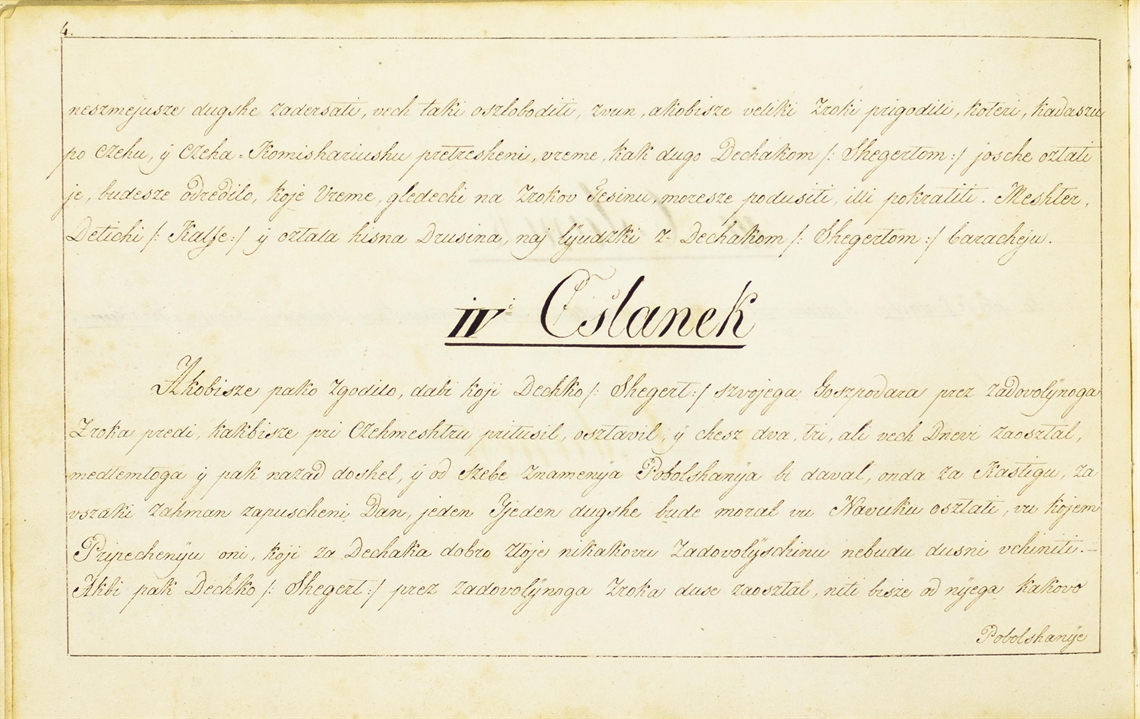 4.
neszmejusze dugshe zadersati, vech taki oszloboditi, zvun, akobisze veliki Zroki prigodili, koteri, kadaszu
po Czehu, ÿ Czeha-Komishariushu pretresheni, vreme, kak dugo Dechakom /: Shegertom :/ josche oztati
je, budesze odredilo, koje Vreme, gledechi na Zrokov Tesinu, moresze podusiti, illi pokratiti. Meshter,
Detichi /: Kalfe :/ ÿ oztala hisna Drusina, naj lyudzki z Dechakom /: Shegertom :/ baracheju.
IV.i Cslanek
Akobisze pako zgodilo, dabi koji Dechko /: Shegert :/ szvojega Goszpodara prez zadovolÿnoga
Zroka predi, kakbisze pri Czehmeshtru pritusil, osztavil, ÿ chesz dva, tri, ali vech Dnevi zaosztal,
medtemtoga ÿ pak nazad doshel, ÿ od szebe Znamenÿa Pobolshanÿa bi daval, onda za Kastigu, za
vszaki zahman zapuscheni Dan, jeden Tjeden dugshe bude moral vu Navuku osztati, vu kojem
Pripechenÿu oni, koji za Dechaka dobro ztoje nikakovu Zadovolÿschinu nebudu dusni vchiniti.–
Akbi pak Dechko /: Shegert :/ prez zadovolÿnoga Zroka duse zaosztal, niti bisze od nÿega kakovo
Pobolshanÿe